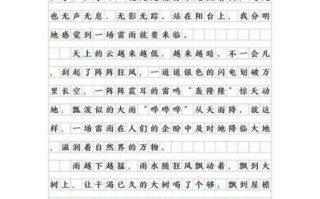 也无声无息、无影无踪。站在阳台上，我分明
地感觉到一场雷雨就要来临。
天上的云越来越低、越来越暗。不一会儿
，刮起了阵阵狂风，一道道银色的闪电划破万
里长空，一阵阵震耳的雷鸣“轰隆隆”惊天动
地，瓢泼似的大雨“哗哗哗”从天而降，就这
样，一场雷雨在人们的企盼中及时地降临大地
，滋润着自然界的万物。
雨越下越猛，雨水随狂风飘动着，飘到大
树上，让干渴已久的大树喝了个够；飘到屋檐